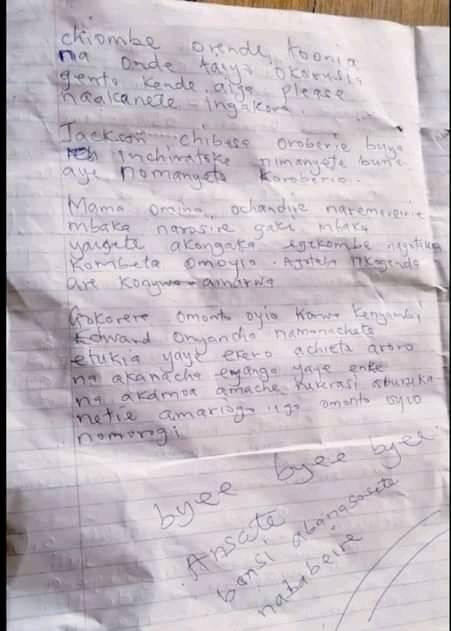 chiombe orende, toonia
na onde taiyo okorusia
gento kende aiga please
naakanete ingakora.
Jackson chibese oroberie buya
inchiratoke nimanyete bune
aye nomanyete koroberio.
Mama omino ochandije naremereirie
mbaka narosire gake mbaka
yaigete akongaka egekombe negetika
kombeta omoyio. Agotebi nkagenda
are kongwa amarwa
Gokorere omonto oyio Kenyambi
Edward Onyancha namanachete
etukia yaye erero achieta aroro
na akanacha enyanga yaye enke
na akamoa amache nukrasi aburuka
netie amariogo igo omonto oyio
nomorogi.
byee byee byee.
Ansote
bansi abanasosete
nababeire